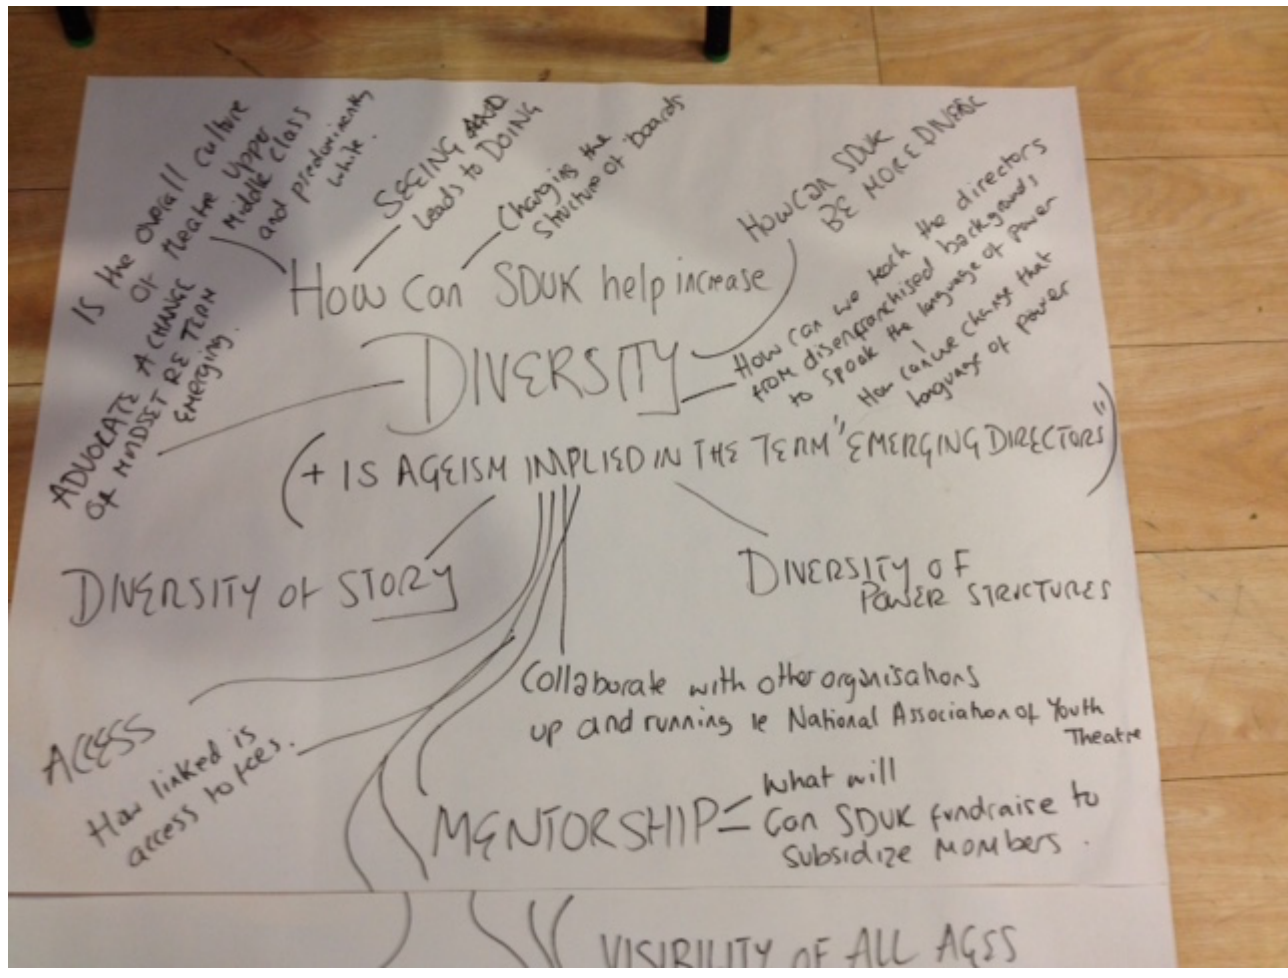 Is the overall culture
of theatre Upper
Middle Class
and predominently
white.
SEEING AND
leads to DOING
Changing the
structure of boards
How can SDUK
BE MORE DIVERSE
How Can SDUK help increase
DIVERSITY
How can we teach the directors
from disenfranchised backgrounds
to speak the language of power
!
How can we change that
language of power
ADVOCATE A CHANGE
OF MINDSET RE TERM
EMERGING.
(+ IS AGEISM IMPLIED IN THE TERM "EMERGING DIRECTORS")
DIVERSITY OF STORY
DIVERSITY OF
POWER STRUCTURES
Collaborate with other organisations
up and running ie National Association of Youth
Theatre
ACCESS
How linked is
access to fees.
MENTORSHIP
What will
Can SDUK fundraise to
subsidize mombers.
VISIBILITY OF ALL AGES